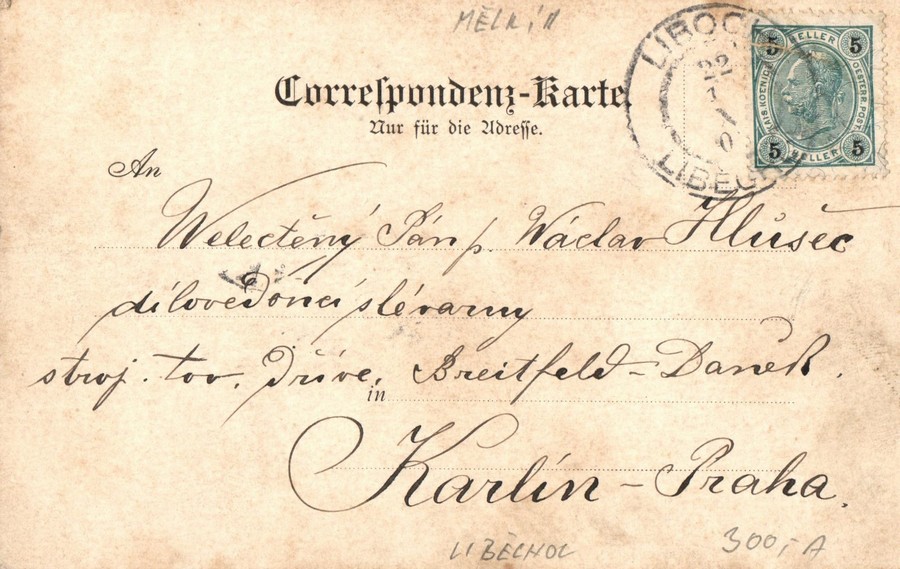 MĚLNÍK
Correspondenz-Karte.
Nur für die Adresse.
LIBOCH
22
LIBĚCHOV
5 HELLER 5
KAIS. KOENIGL. OESTERR. POST.
5 HELLER 5
An
Welectěný Pán p. Wáclav Hlůšec
dílovedoucí slévarny
stroj. tov. Dříve, Breitfeld-Daněk.
in
Karlín-Praha.
LIBĚCHOV
300,- A